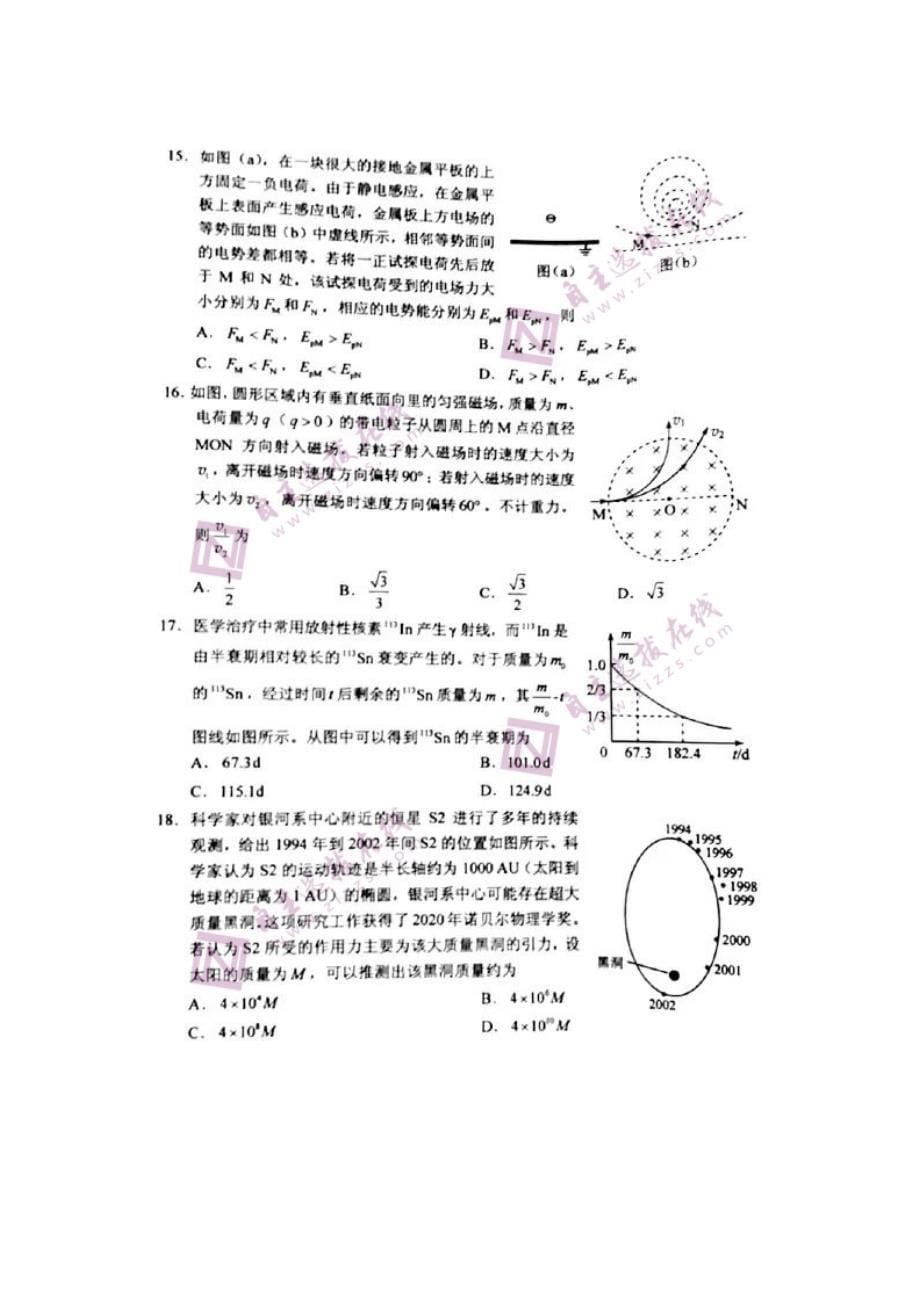 15. 如图(a),在一块很大的接地金属平板的上
方固定一负电荷。由于静电感应,在金属平
板上表面产生感应电荷,金属板上方电场的
等势面如图(b)中虚线所示,相邻等势面间
的电势差都相等。若将一正试探电荷先后放
于 M 和 N 处,该试探电荷受到的电场力大
小分别为 F_M 和 F_N,相应的电势能分别为 E_pM 和 E_pN,则
A. F_M < F_N,E_pM > E_pN
B. F_M > F_N,E_pM > E_pN
C. F_M < F_N,E_pM < E_pN
D. F_M > F_N,E_pM < E_pN
图(a)
M
N
图(b)
16. 如图,圆形区域内有垂直纸面向里的匀强磁场,质量为 m、
电荷量为 q(q>0)的带电粒子从圆周上的 M 点沿直径
MON 方向射入磁场。若粒子射入磁场时的速度大小为
v₁,离开磁场时速度方向偏转90°;若射入磁场时的速度
大小为 v₂,离开磁场时速度方向偏转60°。不计重力。
则 v₁/v₂ 为
A. 1/2
B. √3/3
C. √3/2
D. √3
v₁
v₂
M
O
N
17. 医学治疗中常用放射性核素 ¹¹³In 产生 γ 射线,而 ¹¹³In 是
由半衰期相对较长的 ¹¹³Sn 衰变产生的。对于质量为 m₀
的 ¹¹³Sn,经过时间 t 后剩余的 ¹¹³Sn 质量为 m,其 m/m₀ -t
图线如图所示。从图中可以得到 ¹¹³Sn 的半衰期为
A. 67.3d
B. 101.0d
C. 115.1d
D. 124.9d
m/m₀
1.0
2/3
1/3
0 67.3 182.4 t/d
18. 科学家对银河系中心附近的恒星 S2 进行了多年的持续
观测,给出 1994 年到 2002 年间 S2 的位置如图所示。科
学家认为 S2 的运动轨迹是半长轴约为 1000 AU(太阳到
地球的距离为 1 AU)的椭圆,银河系中心可能存在超大
质量黑洞。这项研究工作获得了 2020 年诺贝尔物理学奖。
若认为 S2 所受的作用力主要为该大质量黑洞的引力,设
太阳的质量为 M,可以推测出该黑洞质量约为
A. 4×10⁴M
B. 4×10⁶M
C. 4×10⁸M
D. 4×10¹⁰M
1994
1995
1996
1997
1998
1999
2000
2001
2002
黑洞
自主选拔在线
www.zizzs.com
自主选拔在线
www.zizzs.com
自主选拔在线
www.zizzs.com
自主选拔在线
www.zizzs.com